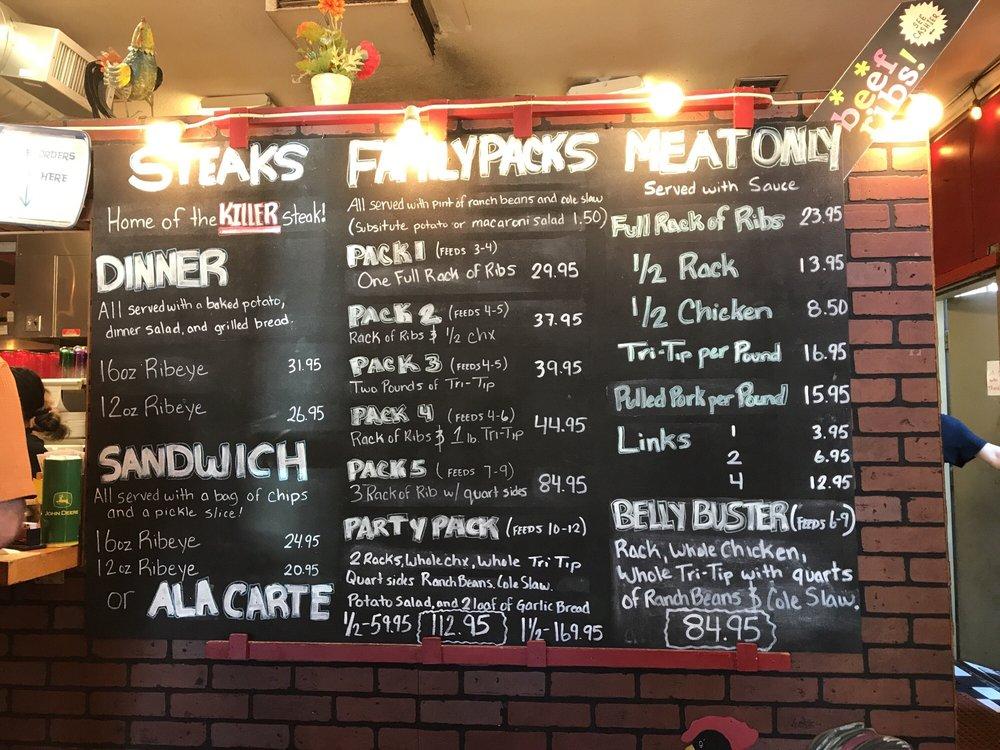 STEAKS
Home of the KILLER steak!
DINNER
All served with a baked potato,
dinner salad, and grilled bread.
16oz Ribeye 31.95
12oz Ribeye 26.95
SANDWICH
All served with a bag of chips
and a pickle slice!
16oz Ribeye 24.95
12oz Ribeye 20.95
or ALA CARTE
FAMILY PACKS
All served with pint of ranch beans and cole slaw
(Subsitute potato or macaroni salad 1.50)
PACK 1 (FEEDS 3-4)
One Full Rack of Ribs 29.95
PACK 2 (FEEDS 4-5)
Rack of Ribs & 1/2 chx 37.95
PACK 3 (FEEDS 4-5)
Two Pounds of Tri-Tip 39.95
PACK 4 (FEEDS 4-6)
Rack of Ribs & 1 lb. Tri-Tip 44.95
PACK 5 (FEEDS 7-9)
3 Rack of Rib w/ quart sides 84.95
PARTY PACK (FEEDS 10-12)
2 Racks, Whole chx, Whole Tri Tip
Quart sides Ranch Beans. Cole Slaw.
Potato Salad, and 2 loaf of Garlic Bread
1/2-59.95 112.95 1 1/2-169.95
MEAT ONLY
Served with Sauce
Full Rack of Ribs 23.95
1/2 Rack 13.95
1/2 Chicken 8.50
Tri-Tip per Pound 16.95
Pulled Pork per Pound 15.95
Links 1 3.95
2 6.95
4 12.95
BELLY BUSTER (FEEDS 6-9)
Rack, Whole Chicken,
Whole Tri-Tip with quarts
of Ranch Beans & Cole Slaw.
84.95
*beef*
ribs!
SEE
CASHIER
ORDERS
HERE
JOHN DEERE